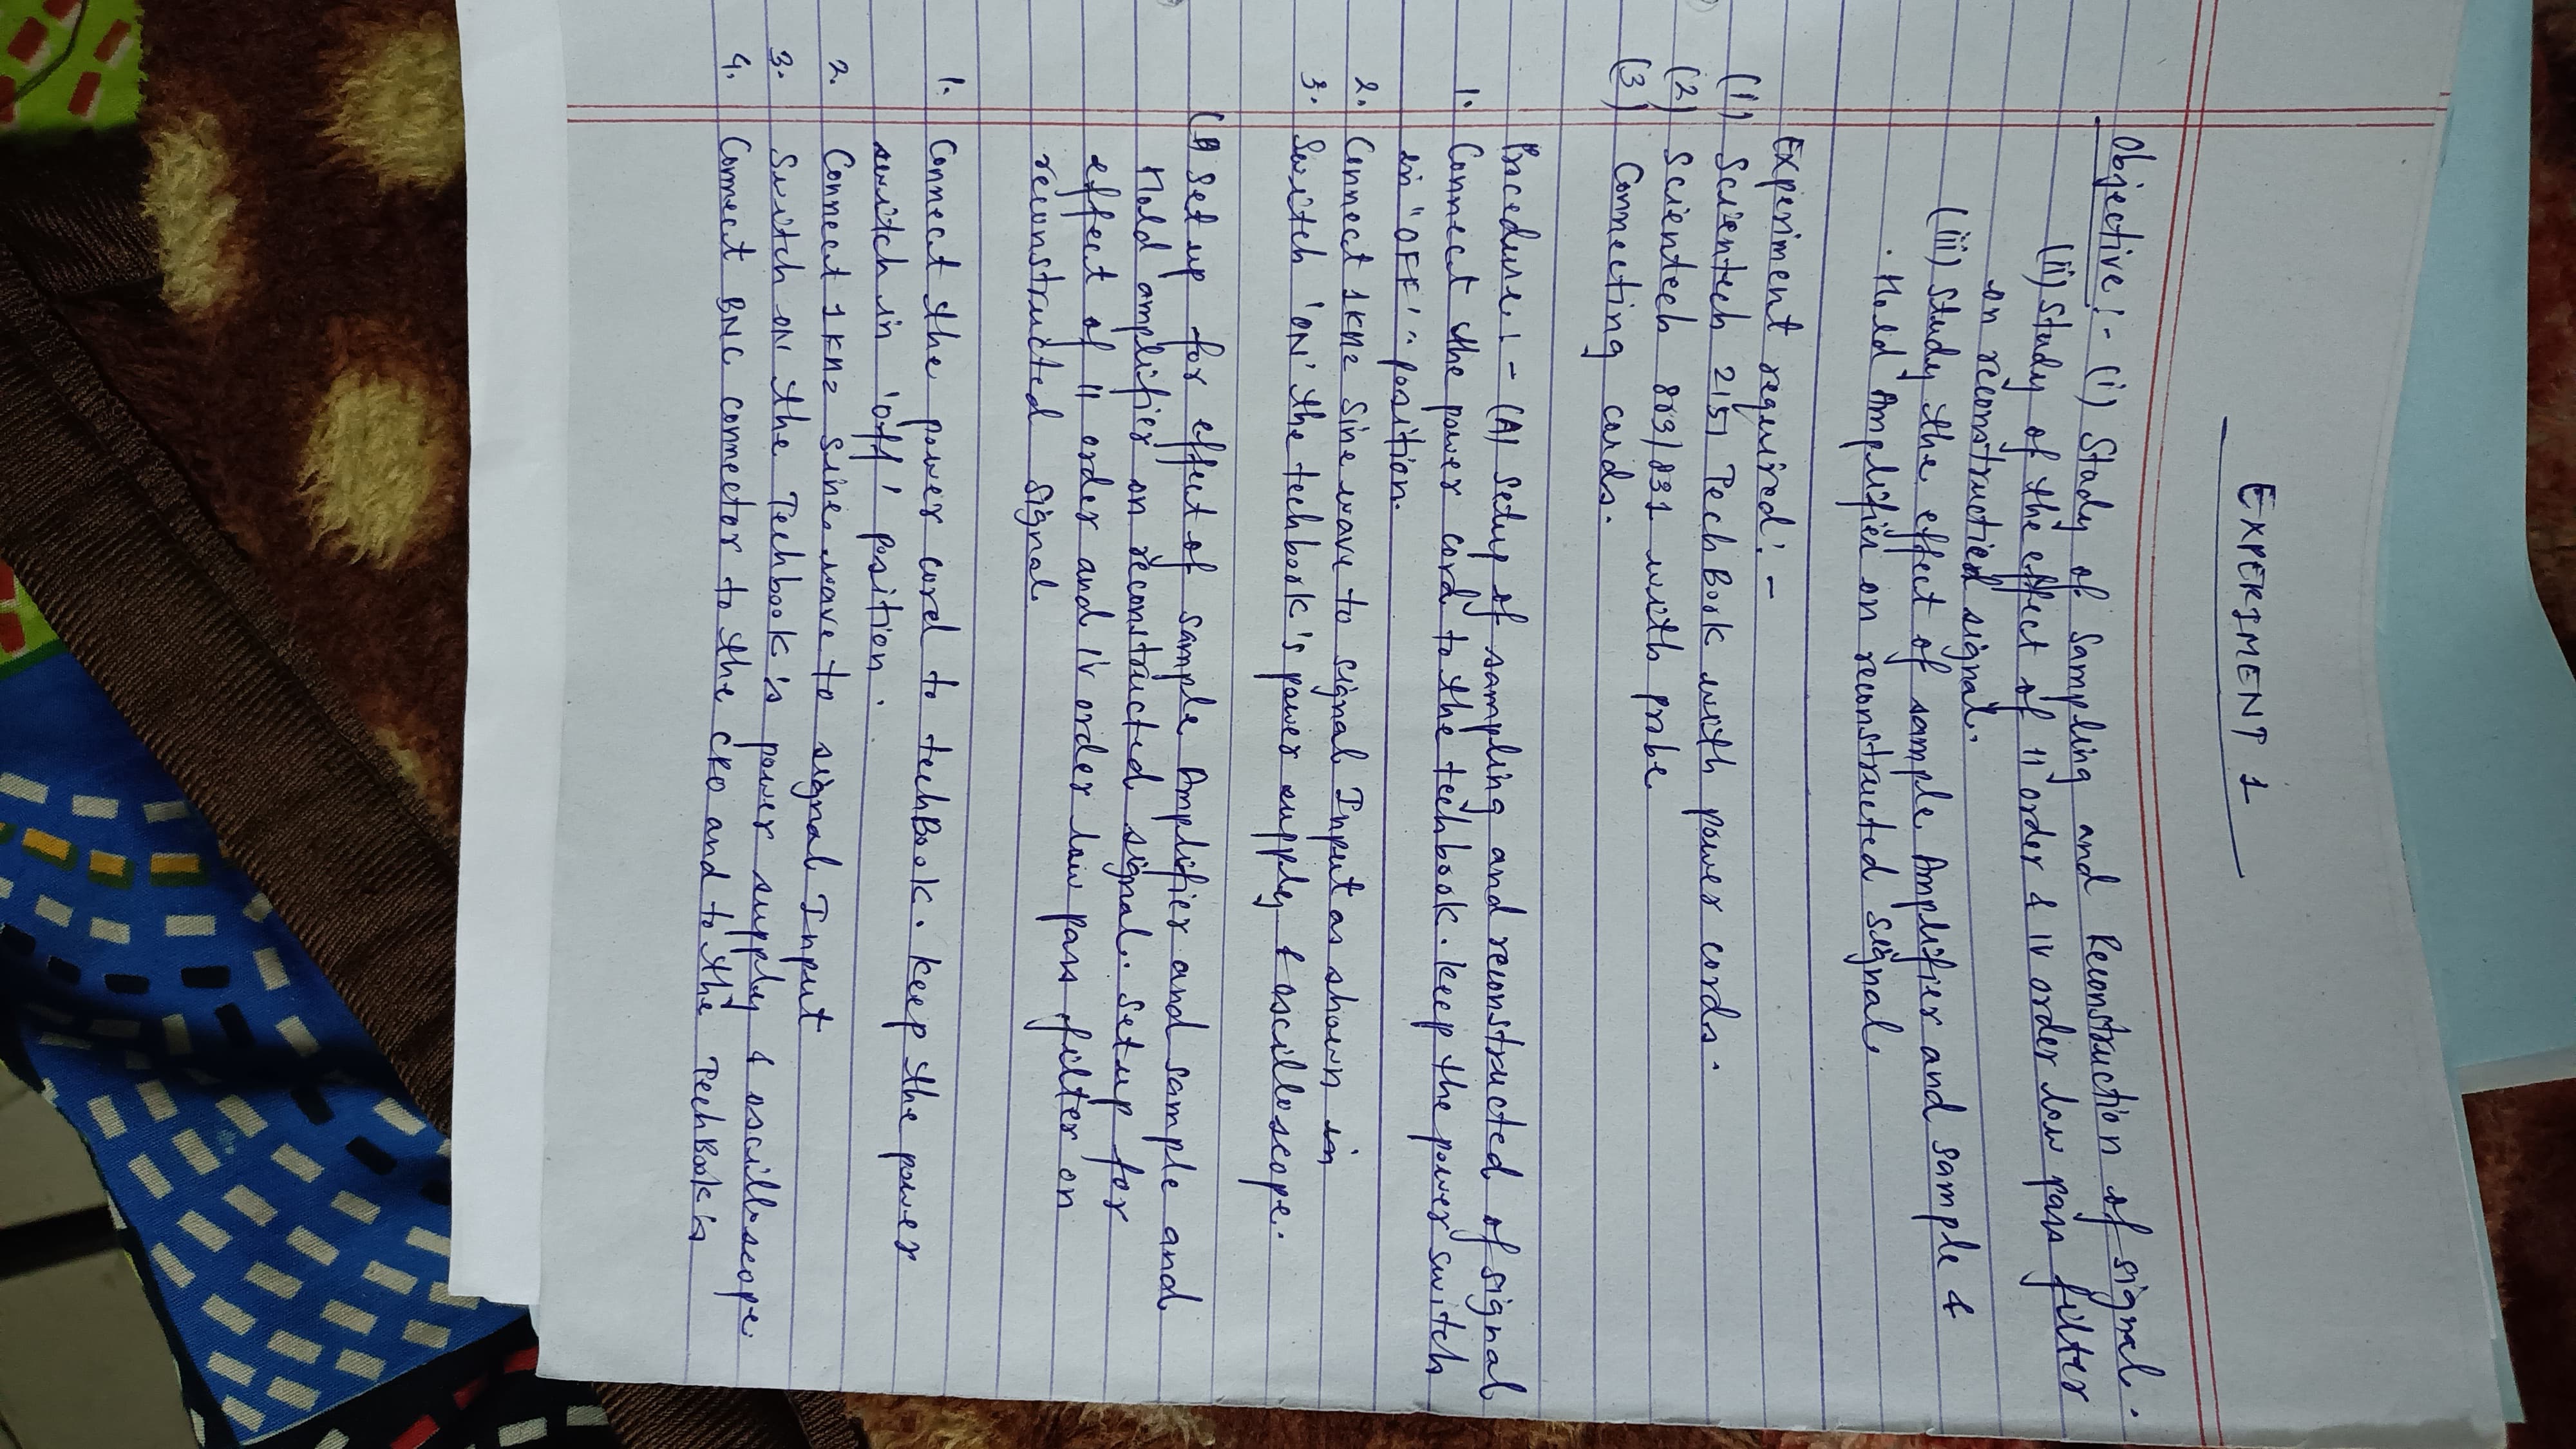 EXPERIMENT 1
Objective :- (i) Study of Sampling and Reconstruction of signal.
(ii) Study of the effect of II order & IV order low pass filter
on reconstructied signal.
(iii) Study the effect of sample Amplifier and sample &
Hold Amplifier on reconstructed signal.
Experiment required :-
(1) Scientech 2151 TechBook with power cords.
(2) Scientech 803/831 with probe.
(3) Connecting cords.
Procedure :- (A) Setup of sampling and reconstructed of signal
1. Connect the power cord to the techbook. keep the power switch
in "OFF' position.
2. Connect 1KHz sine wave to signal Input as shown in
3. Switch 'ON' the techbook's power supply & oscilloscope.
(B) Set up for effect of sample Amplifier and sample and
Hold amplifier on reconstructed signal. Setup for
effect of II order and IV order low pass filter on
reconstructed signal.
1. Connect the power cord to techBook. keep the power
switch in 'off' position.
2. Connect 1KHz sine wave to signal Input
3. Switch ON the Techbook's power supply & oscilloscope.
4. Connect BNC connector to the CRO and to the TechBook's